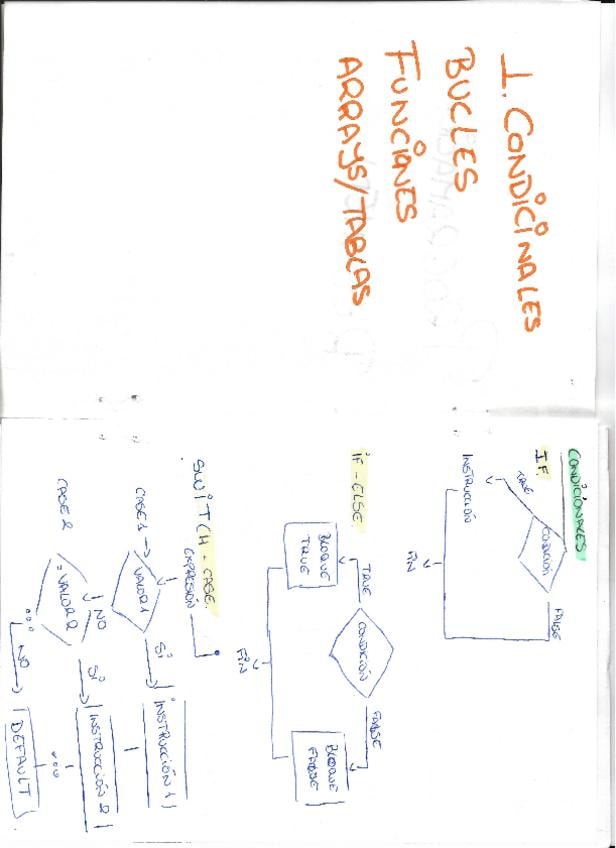 1. CONDICINALES
BUCLES
FUNCIONES
ARRAYS/TABLAS
CONDICIONALES
IF
CONDICIÓN
TRUE
FALSE
INSTRUCCIÓN
FIN
IF - ELSE
CONDICIÓN
TRUE
FALSE
BLOQUE
TRUE
BLOQUE
FALSE
FIN
SWITCH - CASE
EXPRESIÓN
CASE 1
VALOR 1
SÍ
INSTRUCCIÓN 1
NO
CASE 2
=VALOR 2
SÍ
INSTRUCCIÓN 2
...
...
NO
DEFAULT